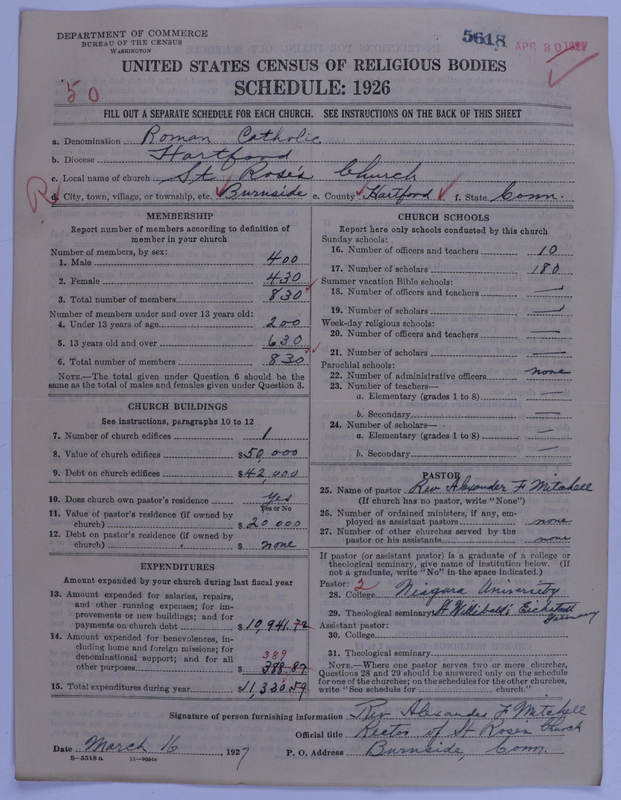 DEPARTMENT OF COMMERCE
BUREAU OF THE CENSUS
WASHINGTON
5618
APR 30 1927
UNITED STATES CENSUS OF RELIGIOUS BODIES
SCHEDULE: 1926
50
FILL OUT A SEPARATE SCHEDULE FOR EACH CHURCH. SEE INSTRUCTIONS ON THE BACK OF THIS SHEET
a. Denomination Roman Catholic
b. Diocese Hartford
c. Local name of church St Rose's Church
d. City, town, village, or township, etc. Burnside e. County Hartford f. State Conn.
MEMBERSHIP
Report number of members according to definition of
member in your church
Number of members, by sex:
1. Male 400
2. Female 430
3. Total number of members 830
Number of members under and over 13 years old:
4. Under 13 years of age 200
5. 13 years old and over 630
6. Total number of members 830
NOTE.—The total given under Question 6 should be the
same as the total of males and females given under Question 3.
CHURCH BUILDINGS
See instructions, paragraphs 10 to 12
7. Number of church edifices 1
8. Value of church edifices $50,000
9. Debt on church edifices $42,000
10. Does church own pastor's residence yes
Yes or No
11. Value of pastor's residence (if owned by
church) $20 000
12. Debt on pastor's residence (if owned by
church) $ none
EXPENDITURES
Amount expended by your church during last fiscal year
13. Amount expended for salaries, repairs,
and other running expenses; for im-
provements or new buildings; and for
payments on church debt $10,941.72
14. Amount expended for benevolences, in-
cluding home and foreign missions; for
denominational support; and for all
other purposes 389
$ 388.87
15. Total expenditures during year $11,330.59
CHURCH SCHOOLS
Report here only schools conducted by this church
Sunday schools:
16. Number of officers and teachers 10
17. Number of scholars 180
Summer vacation Bible schools:
18. Number of officers and teachers —
19. Number of scholars —
Week-day religious schools:
20. Number of officers and teachers —
21. Number of scholars —
Parochial schools:
22. Number of administrative officers none
23. Number of teachers—
a. Elementary (grades 1 to 8) —
b. Secondary —
24. Number of scholars—
a. Elementary (grades 1 to 8) —
b. Secondary —
PASTOR
25. Name of pastor Rev Alexander F Mitchell
(If church has no pastor, write "None")
26. Number of ordained ministers, if any, em-
ployed as assistant pastors none
27. Number of other churches served by the
pastor or his assistants none
If pastor (or assistant pastor) is a graduate of a college or
theological seminary, give name of institution below. (If
not a graduate, write "No" in the space indicated.)
Pastor: 2
28. College Niagara University
29. Theological seminary St Willibald's Eichstatt
Germany
Assistant pastor:
30. College
31. Theological seminary
NOTE.—Where one pastor serves two or more churches,
Questions 28 and 29 should be answered only on the schedule
for one of the churches; on the schedules for the other churches,
write "See schedule for church."
Signature of person furnishing information Rev Alexander F Mitchell
Official title Rector of St Rose's Church
Date March 16, 1927 P. O. Address Burnside, Conn.
S—5518 a